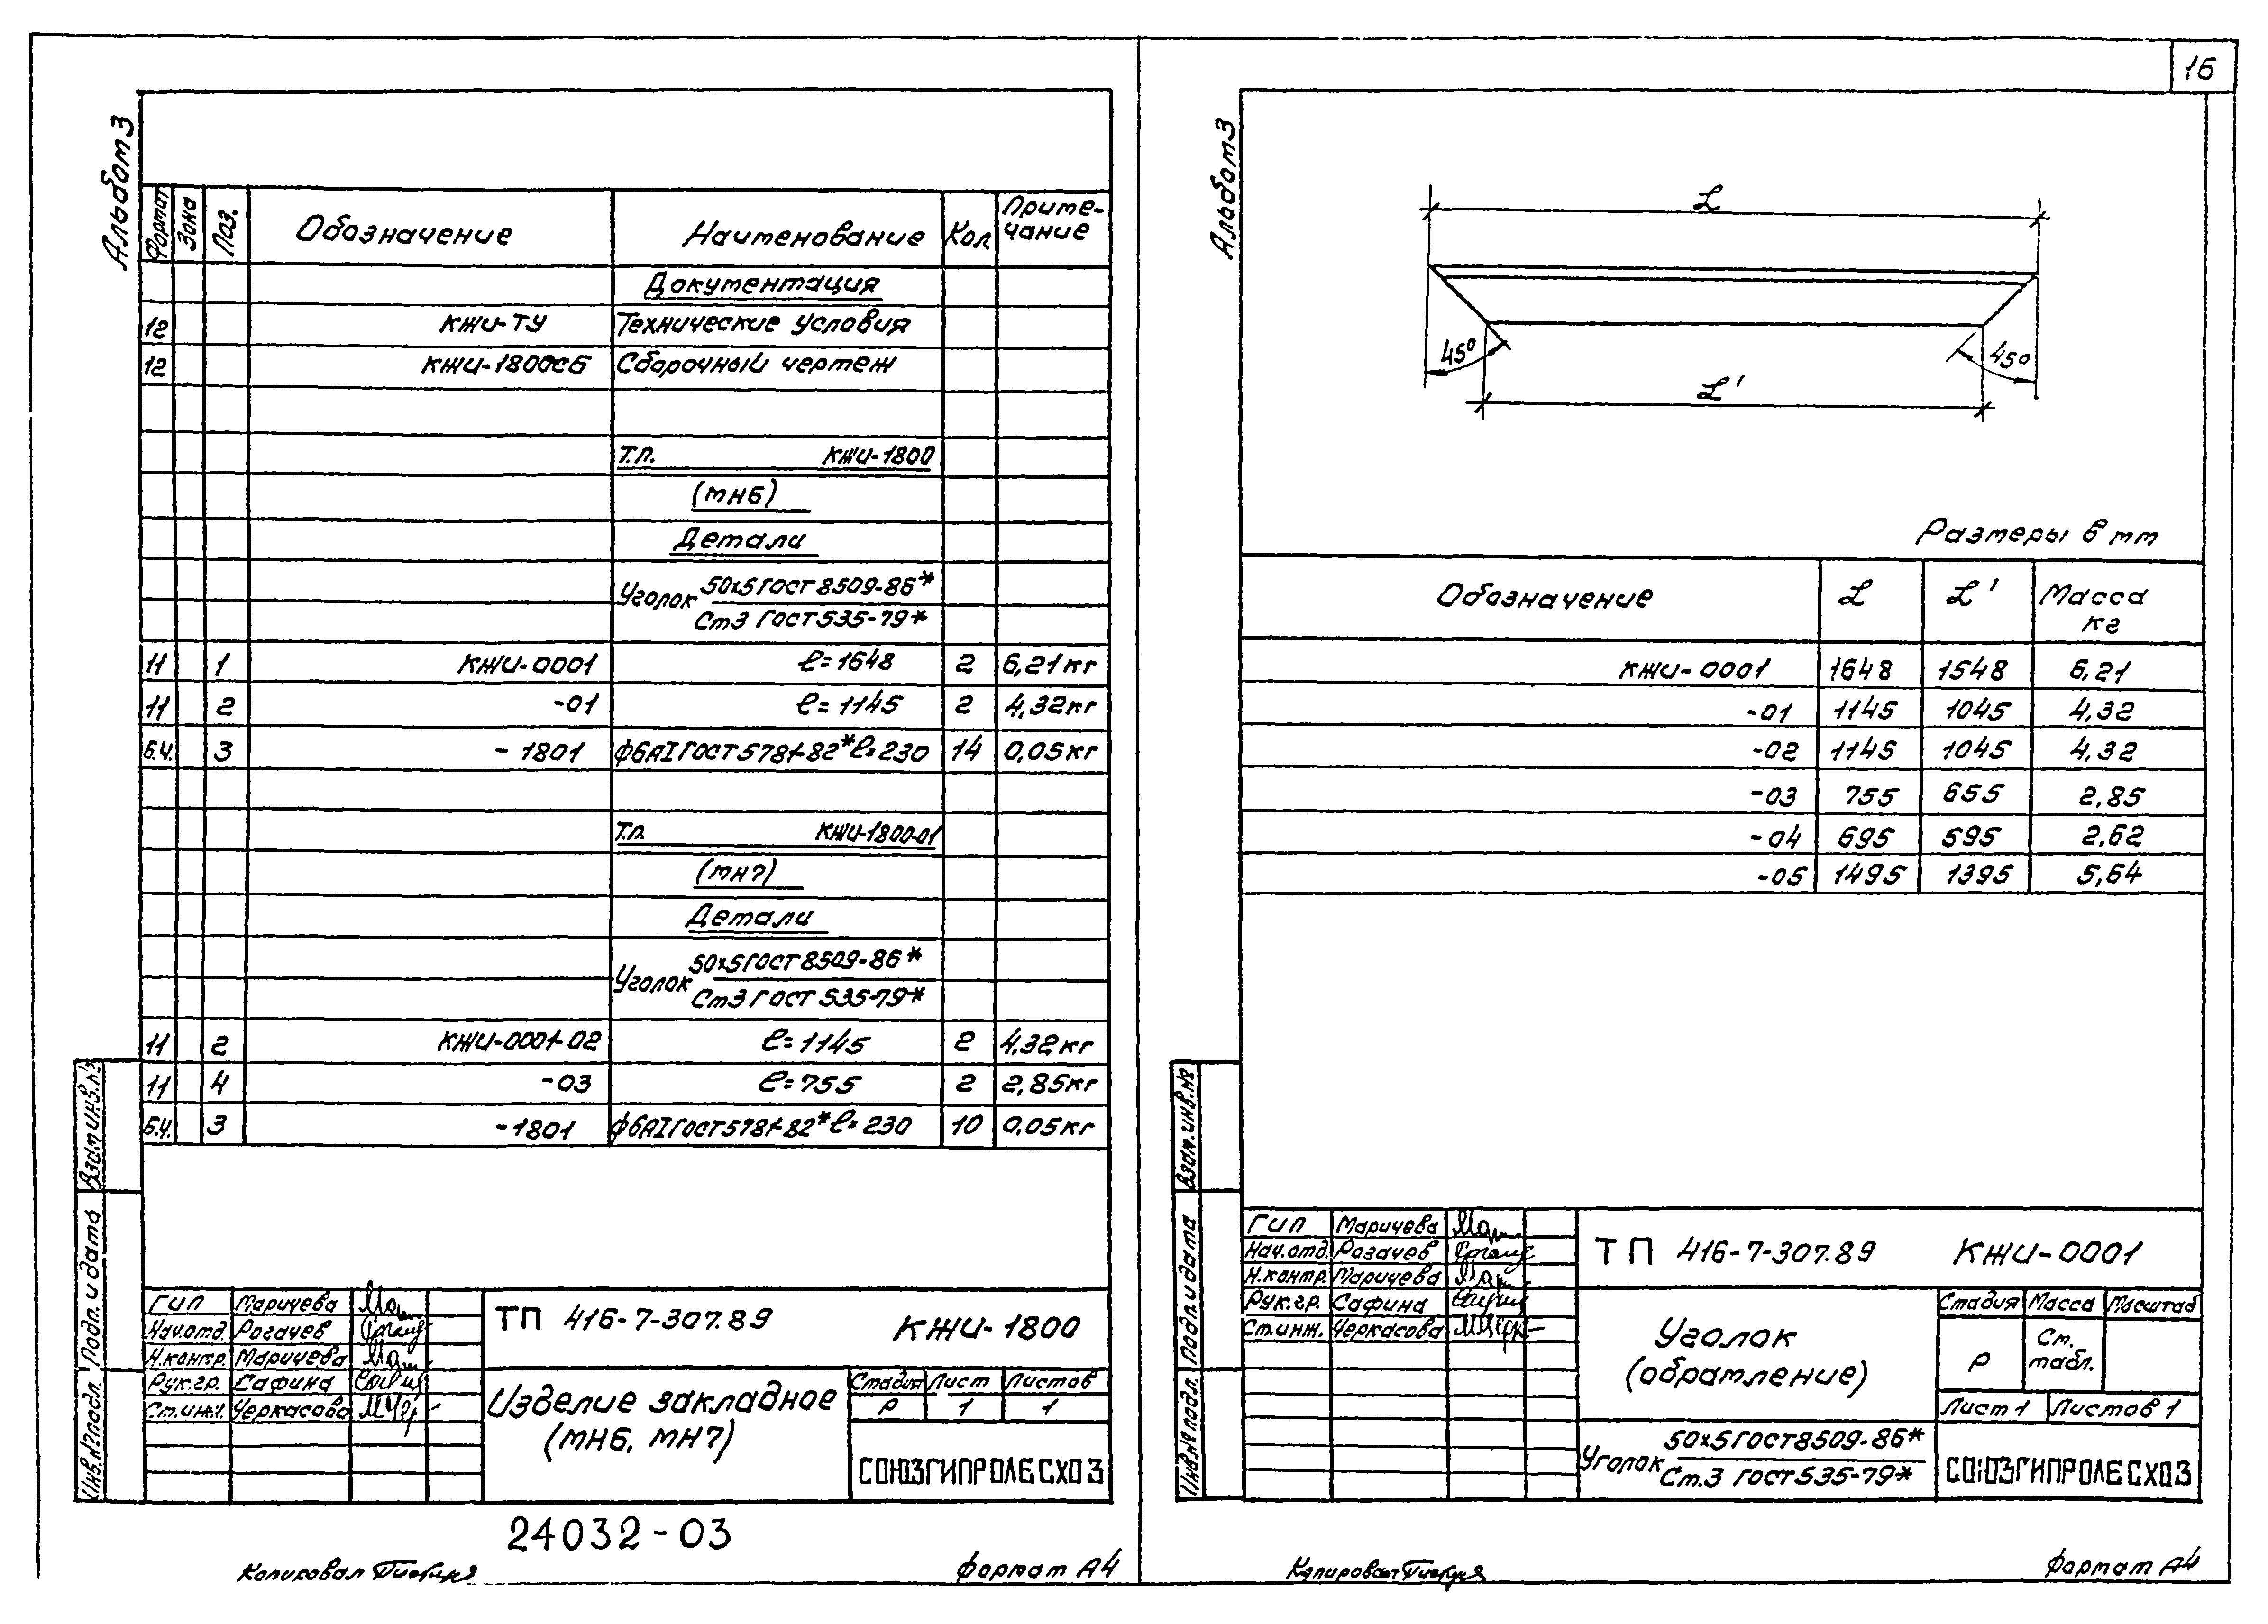 16
Альбом 3
Формат Зона Поз. Обозначение Наименование Кол. Приме-чание
Документация
12 КЖИ-ТУ Технические условия
12 КЖИ-1800СБ Сборочный чертеж
Т.П. КЖИ-1800
(МН6)
Детали
Уголок 50х5 ГОСТ 8509-86*
Ст3 ГОСТ 535-79*
11 1 КЖИ-0001 ℓ=1648 2 6,21кг
11 2 -01 ℓ=1145 2 4,32кг
Б.Ч. 3 -1801 ф6АI ГОСТ 5781-82* ℓ=230 14 0,05кг
Т.П. КЖИ-1800-01
(МН7)
Детали
Уголок 50х5 ГОСТ 8509-86*
Ст3 ГОСТ 535-79*
11 2 КЖИ-0001-02 ℓ=1145 2 4,32кг
11 4 -03 ℓ=755 2 2,85кг
Б.Ч. 3 -1801 ф6АI ГОСТ 5781-82* ℓ=230 10 0,05кг
Взам инв.№
Подп. и дата
Инв.№ подл.
ГИП Маричева
Нач.отд. Рогачев
Н.контр. Маричева
Рук.гр. Сафина
Ст.инж. Черкасова
ТП 416-7-307.89 КЖИ-1800
Изделие закладное
(МН6, МН7)
Стадия Лист Листов
Р 1 1
СОЮЗГИПРОЛЕСХОЗ
24032-03
Копировал
Формат А4
Альбом 3
L
45°
45°
L'
Размеры в мм
Обозначение L L' Масса кг
КЖИ-0001 1648 1548 6,21
-01 1145 1045 4,32
-02 1145 1045 4,32
-03 755 655 2,85
-04 695 595 2,62
-05 1495 1395 5,64
Взам.инв.№
Подп. и дата
Инв.№ подл.
ГИП Маричева
Нач.отд. Рогачев
Н.контр. Маричева
Рук.гр. Сафина
Ст.инж. Черкасова
ТП 416-7-307.89 КЖИ-0001
Уголок
(обрамление)
Стадия Масса Масштаб
Р Ст. табл.
Лист 1 Листов 1
Уголок 50х5 ГОСТ 8509-86*
Ст.3 ГОСТ 535-79*
СОЮЗГИПРОЛЕСХОЗ
Копировал
Формат А4